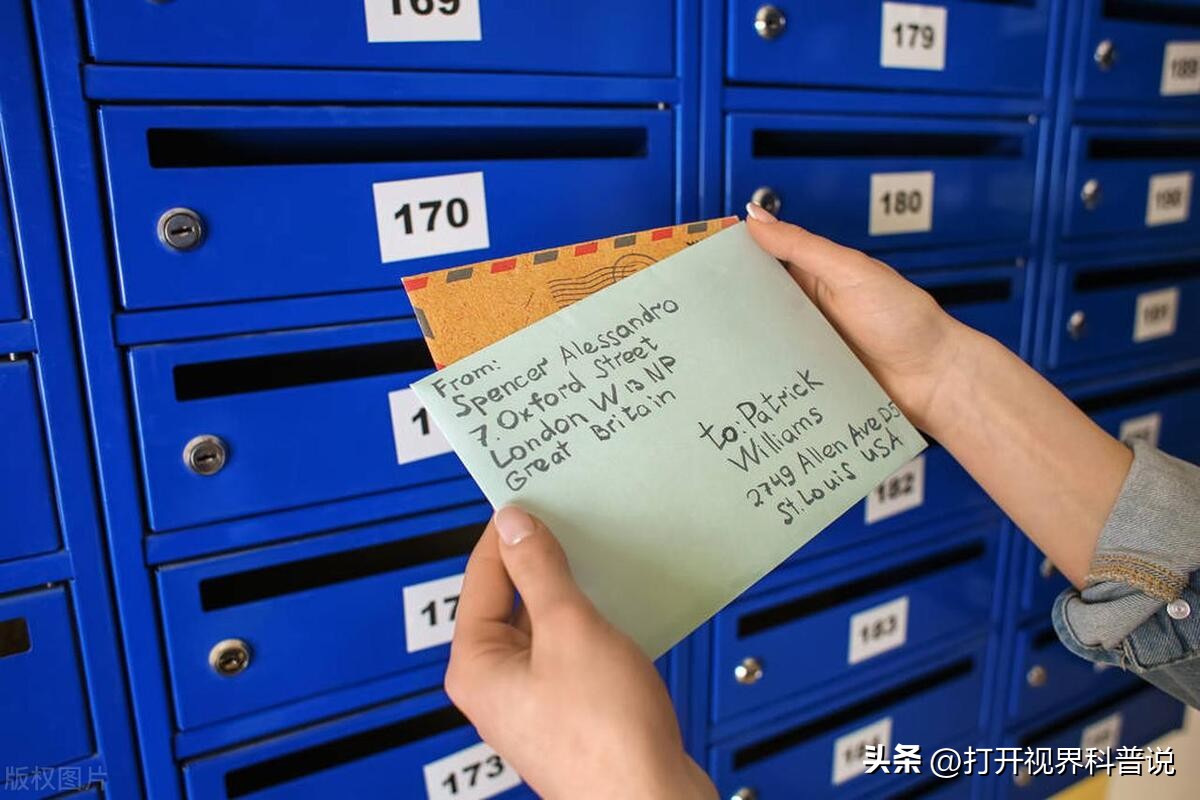 169
179
189
170
180
190
191
From:
Spencer Alessandro
7. Oxford Street
London W13 NP
Great Britain
to: Patrick
Williams
2749 Allen Ave D5
St. Louis USA
182
183
173
头条 @打开视界科普说
版权图片